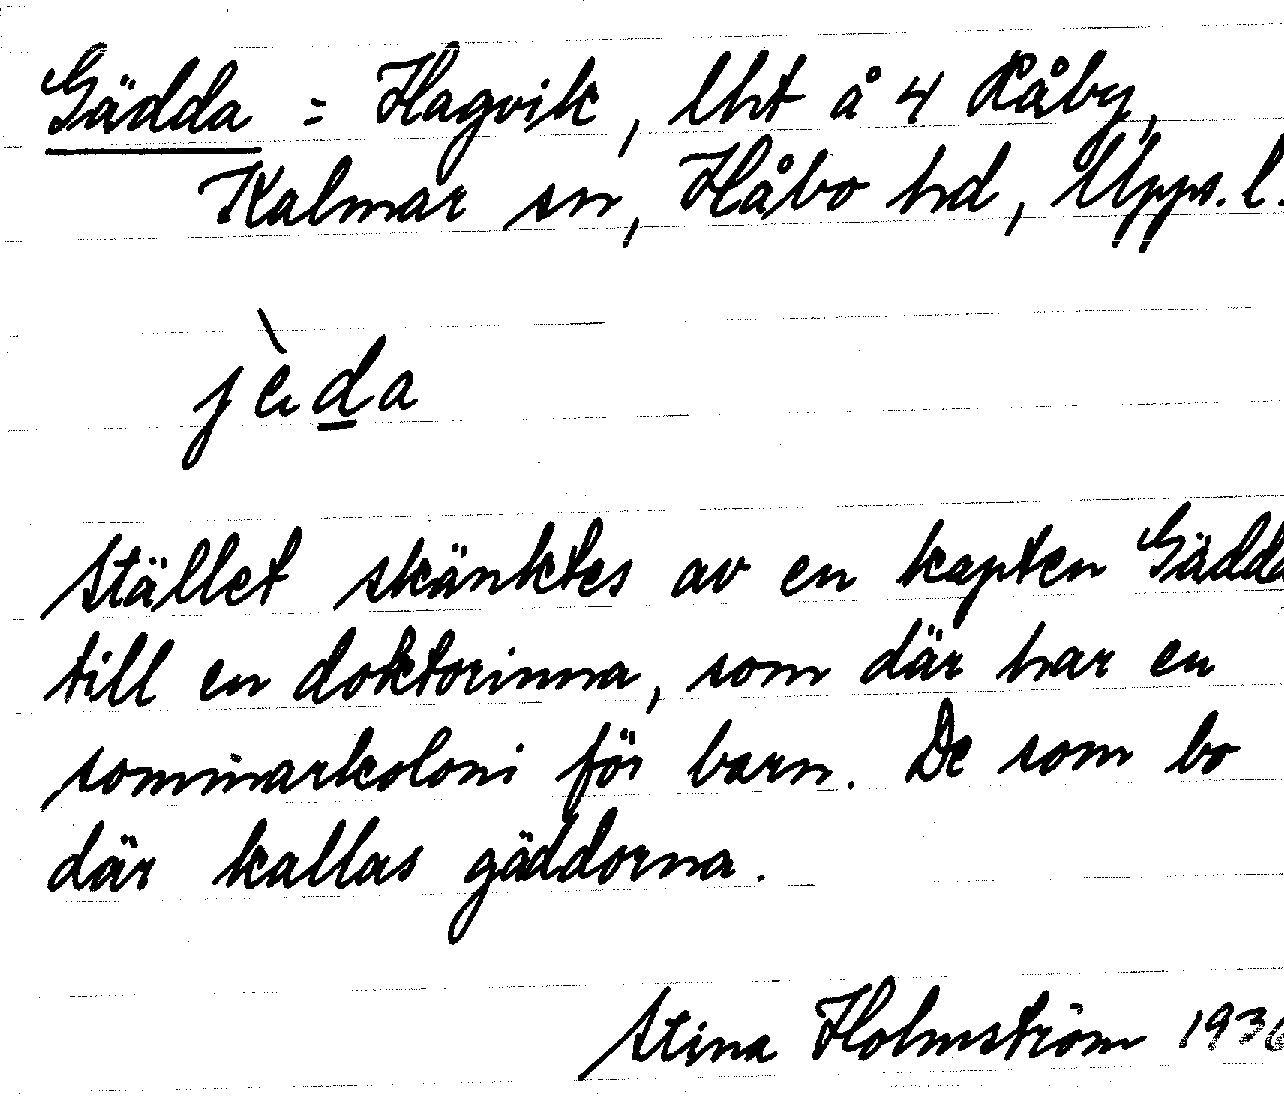 Gädda = Hagvik, lht å 4 Råby,
Kalmar sn, Håbo hd, Upps. l.
jèda
Stället skänktes av en kapten Gädda
till en doktorinna, som där har en
sommarkoloni för barn. De som bo
där kallas gäddorna.
Stina Holmström 1936